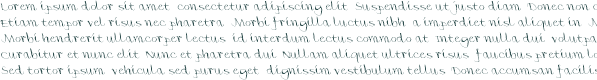 Lorem ipsum dolor sit amet consectetur adipiscing elit Suspendisse ut justo diam Donec non o
Etiam tempor vel risus nec pharetra Morbi fringilla luctus nibh a imperdiet nisl aliquet in M
Morbi hendrerit ullamcorper lectus id interdum lectus commodo at Integer nulla dui volutpa
Curabitur et nunc elit Nunc et pharetra dui Nullam aliquet ultrices risus faucibus pretium lo
Sed tortor ipsum vehicula sed purus eget dignissim vestibulum tellus Donec accumsan facilis